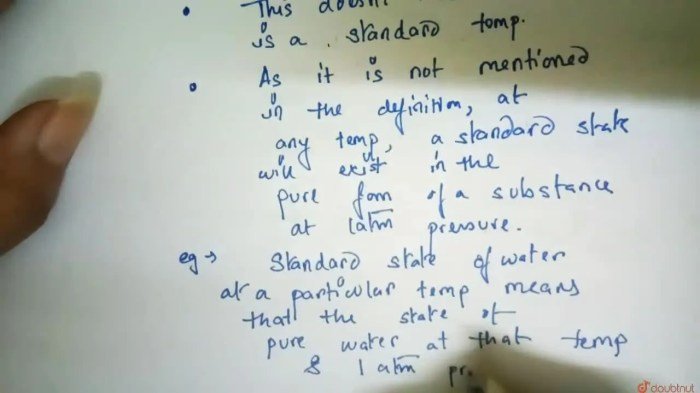 • This doesn
is a . standard temp.
• As it is not mentioned
in the definition, at
any temp, a standard state
will exist in the
pure form of a substance
at 1atm pressure.
eg → Standard state of water
at a particular temp means
that the state of
pure water at that temp
& 1 atm pr.
doubtnut